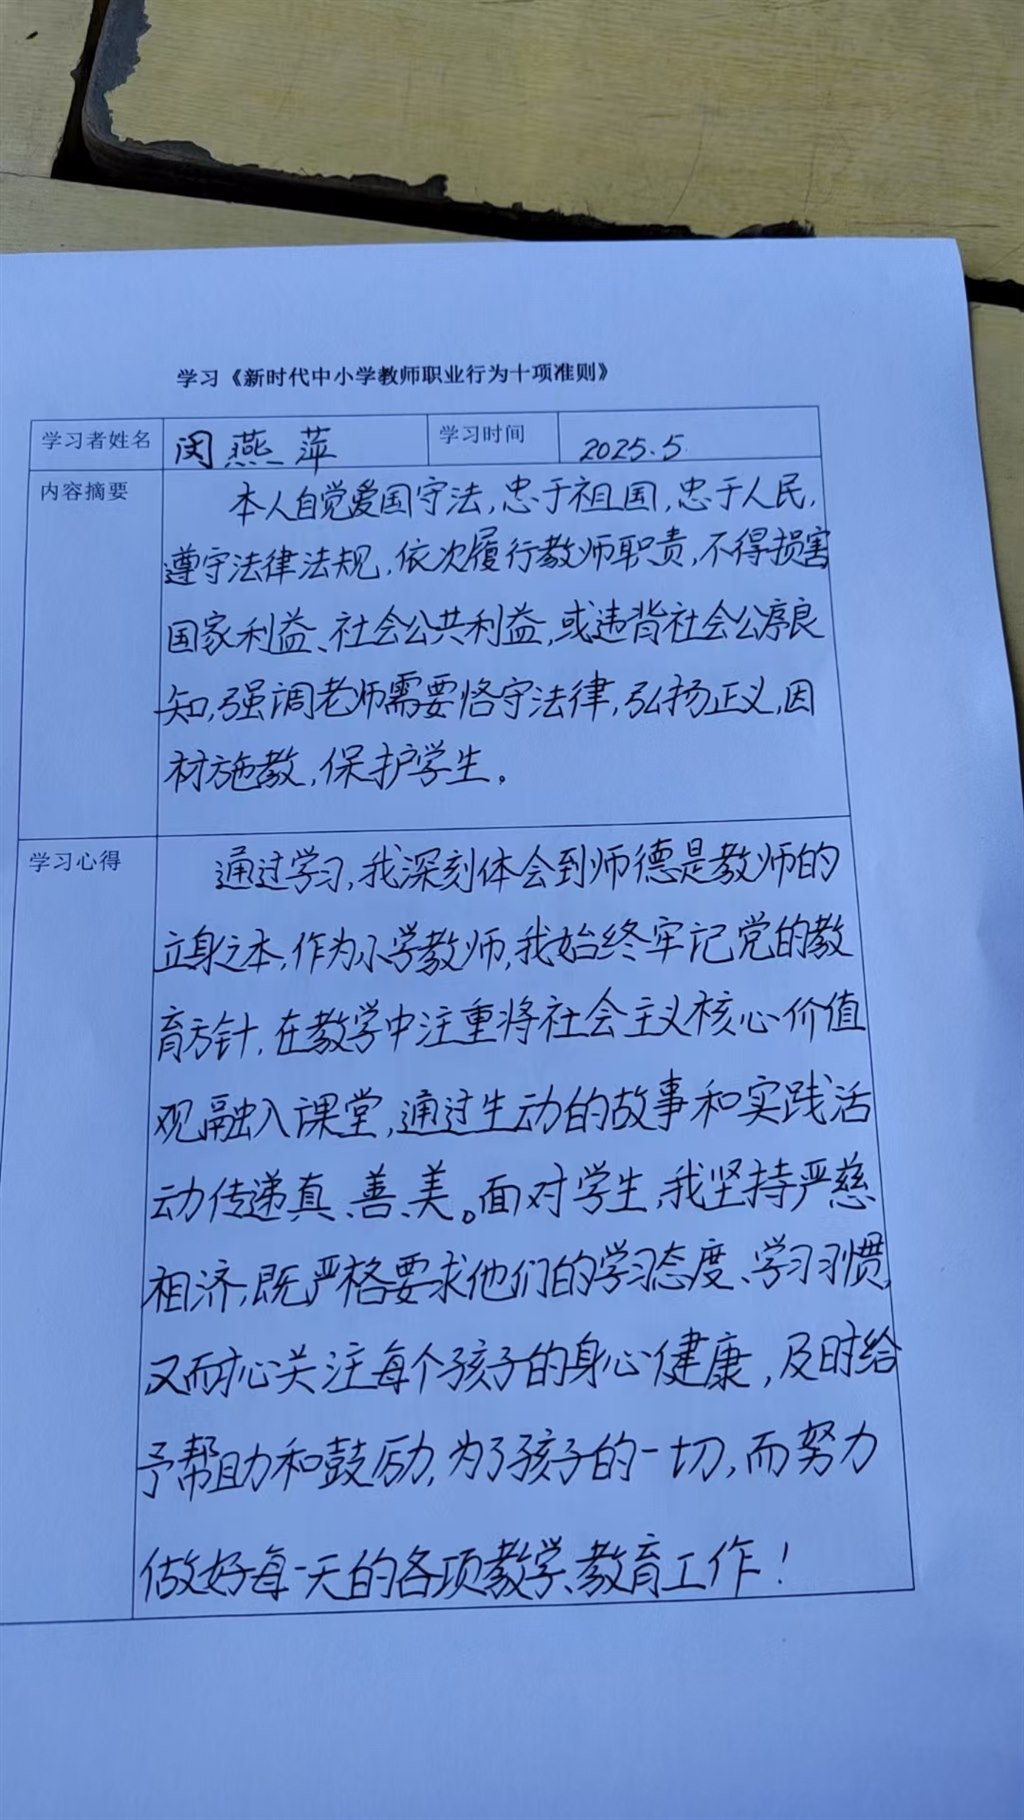 学习《新时代中小学教师职业行为十项准则》
学习者姓名 闵燕萍 学习时间 2025.5
内容摘要
本人自觉爱国守法,忠于祖国,忠于人民,
遵守法律法规,依次履行教师职责,不得损害
国家利益、社会公共利益,或违背社会公序良
知,强调老师需要恪守法律,弘扬正义,因
材施教,保护学生。
学习心得
通过学习,我深刻体会到师德是教师的
立身之本,作为小学教师,我始终牢记党的教
育方针,在教学中注重将社会主义核心价值
观融入课堂,通过生动的故事和实践活
动传递真、善、美。面对学生,我坚持严慈
相济,既严格要求他们的学习态度、学习习惯,
又耐心关注每个孩子的身心健康,及时给
予帮助和鼓励,为了孩子的一切,而努力
做好每一天的各项教学、教育工作!